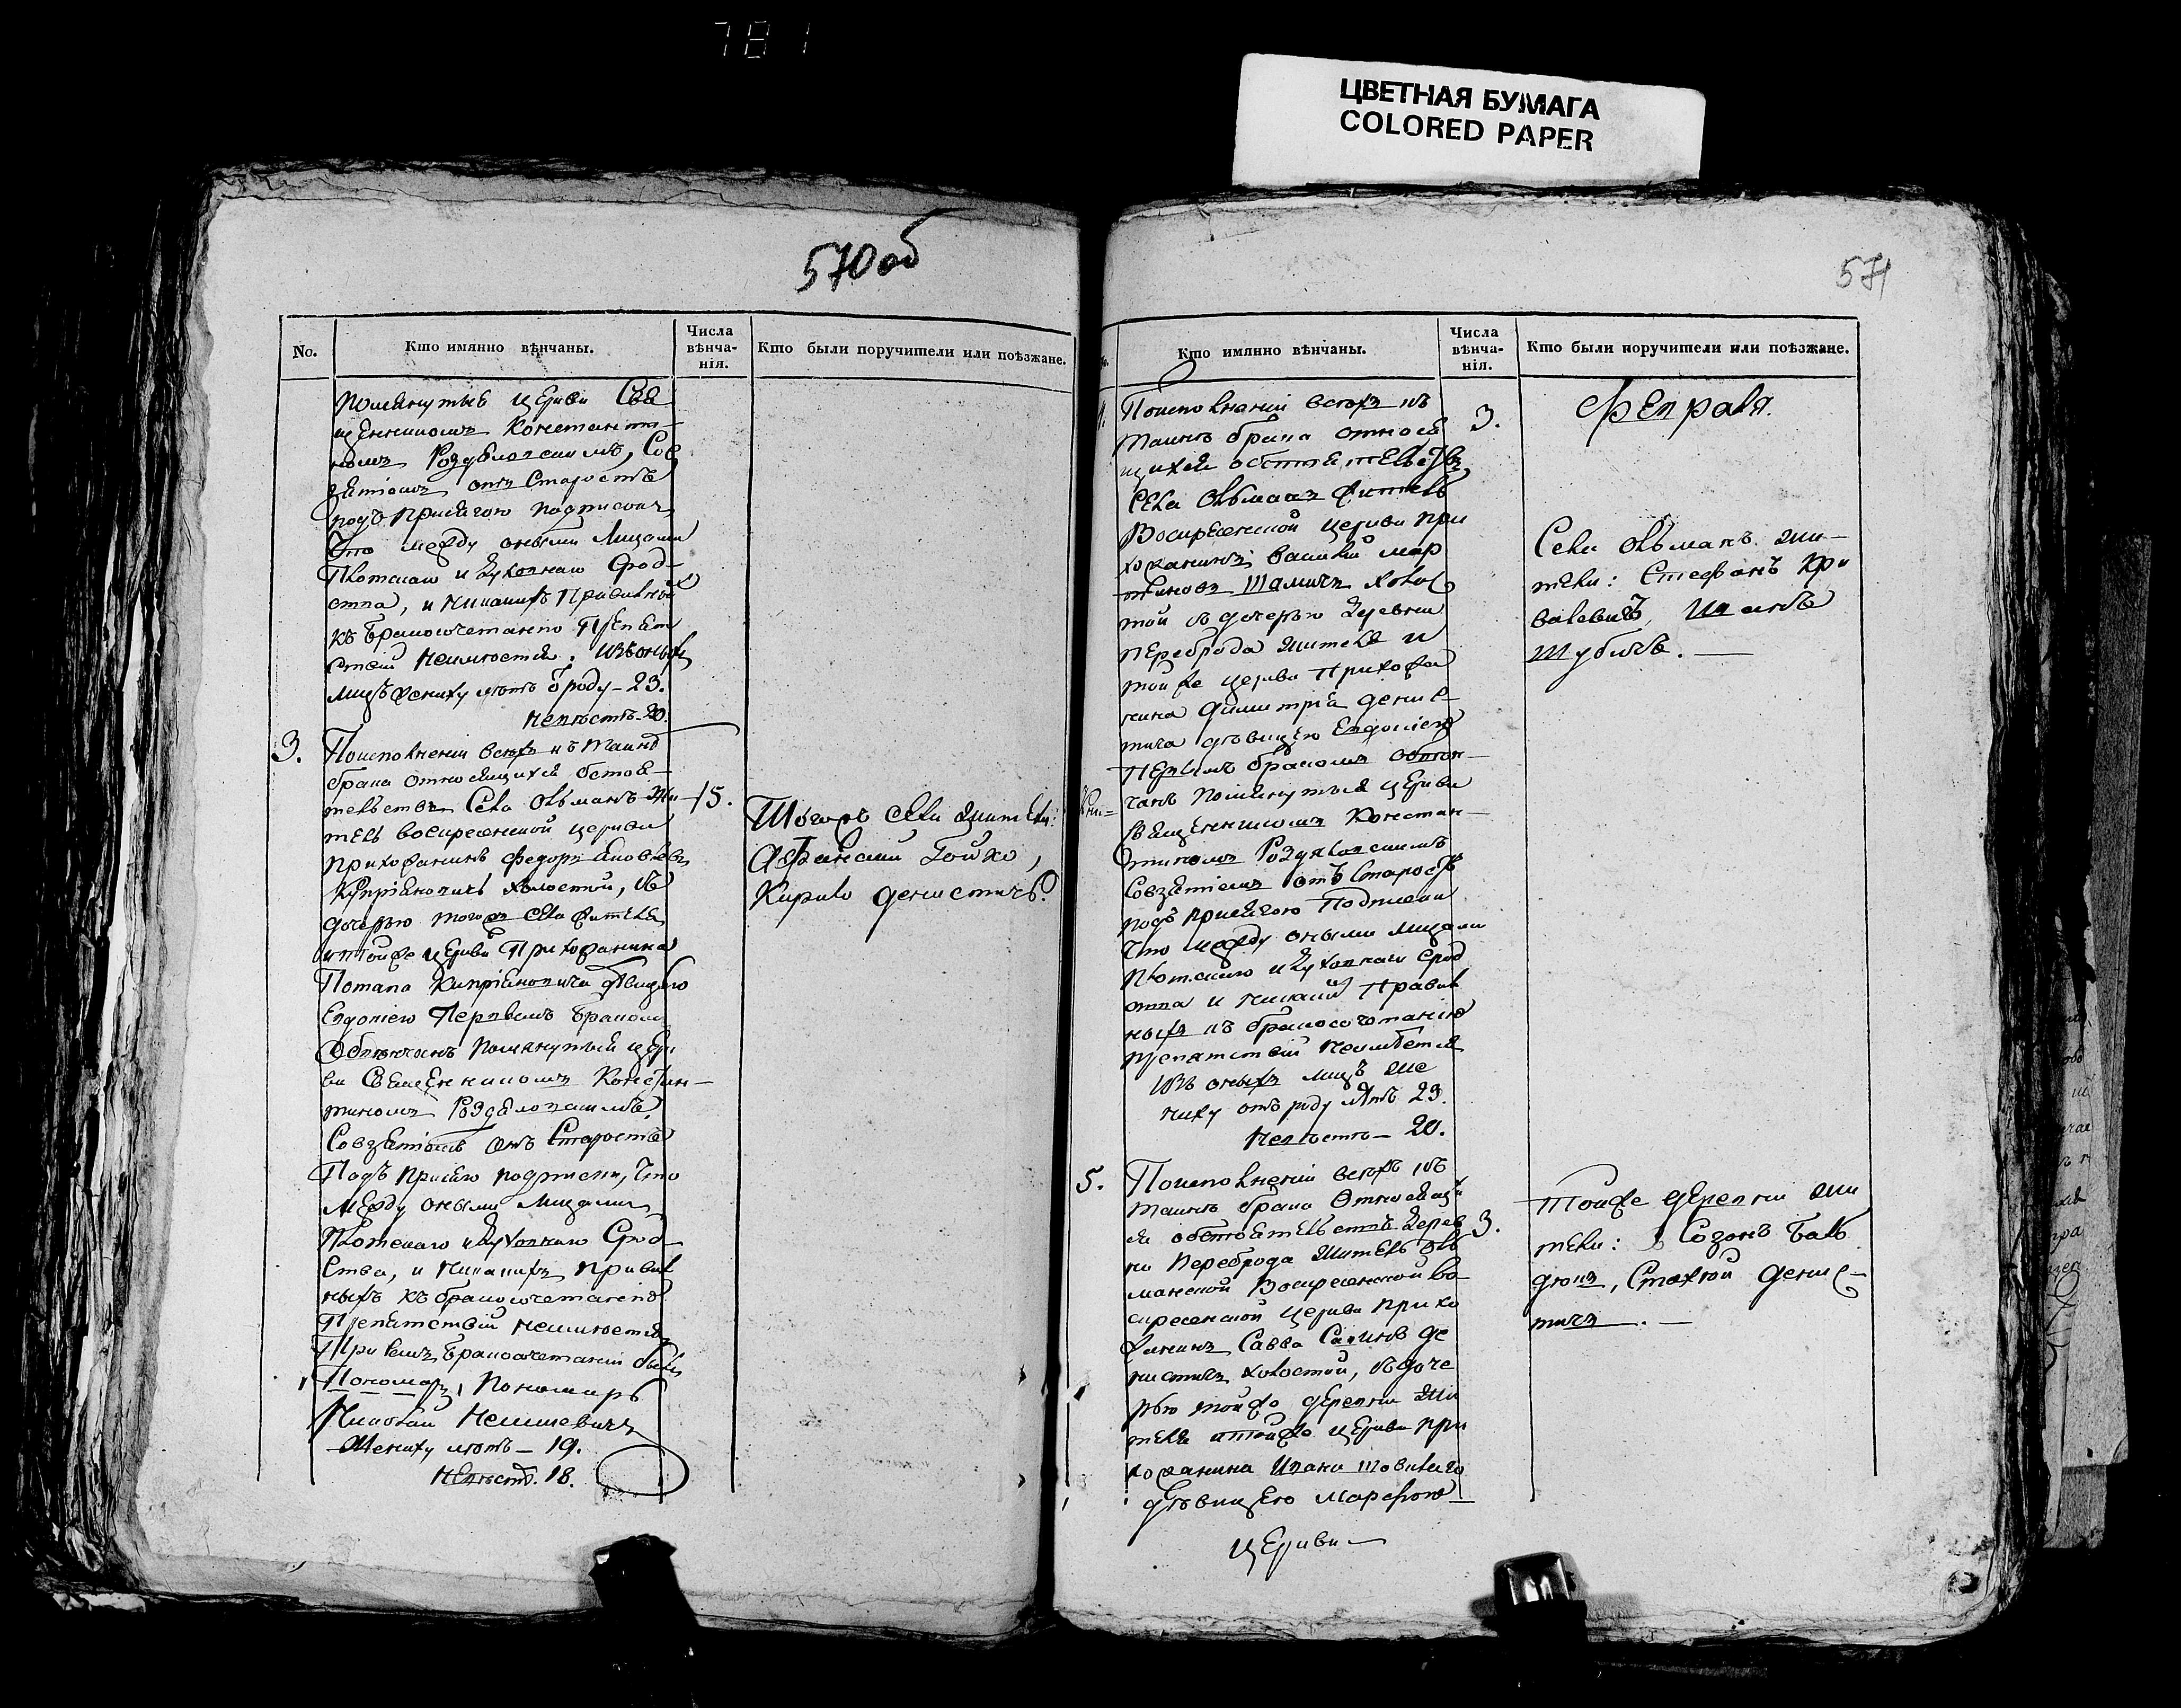 781
ЦВЕТНАЯ БУМАГА
COLORED PAPER
570 об
No.
Кто имянно вѣнчаны.
Числа
вѣнча-
нія.
Кто были поручители или поѣзжане.
помянутыя церкви Свя
щенникомъ Константи-
номъ
зятіемъ отъ Старостъ
подъ присягою подписокъ
Что между оными лицами
Плотскаго и духовнаго Срод-
ства, и никакихъ правильныхъ
къ бракосочетанію Препят
ствій неимѣется. Изъ оныхъ
лицъ жениху лѣтъ роду - 23.
невѣстѣ - 20.
3. Поисполненіи всѣхъ къ таинѣ
брака относящихся обстоя-
тельствъ Села Ольманъ Жи-
тель воскресенской церкви
прихожанинъ Федоръ Яковлевъ
Кипріяновичъ холостой, съ
дочерью тогожъ села жителя
и тойже церкви Прихожанина
Потапа Кипріяновича дѣвицею
Евдокіею Первымъ бракомъ
Обвѣнчанъ помянутыя церк
ви Священникомъ Констан-
тиномъ
Совзятіемъ отъ Старостъ
Подъ присягою подписки, что
между оными лицами
Плотскаго и духовнаго Срод
ства, и никакихъ правиль
ныхъ къ бракосочетанію
Препятствій неимѣется
При семъ бракосочетаніи былъ
Пономарь, Пономарь
Николай
Жениху лѣтъ - 19.
Невѣстѣ. 18.
15.
Тогожъ села жители:
Афанасій Бойко,
Кирило Денистичъ.
571
Кто имянно вѣнчаны.
Числа
вѣнча-
нія.
Кто были поручители или поѣзжане.
Поисполненіи всѣхъ къ
таинѣ брака относя
щихся обстоятельствъ
Села Ольманъ житель
Воскресенской церкви при
хожанинъ Василій Мар
тиновъ холос
той съ дочерью деревни
Переброда жителя и
тойже церкви Прихожа
нина Димитрія Денис-
тича дѣвицею Евдокіею
Первымъ бракомъ обвѣн-
чанъ помянутыя церкви
священникомъ Констан-
тиномъ
Совзятіемъ отъ Старостъ
подъ присягою Подписки
Что между оными лицами
Плотскаго и духовнаго срод
ства и никакихъ Правиль
ныхъ къ бракосочетанію
препятствій неимѣется
Изъ оныхъ лицъ же
ниху отъ роду лѣтъ 23.
Невѣстѣ - 20.
3.
Февраля.
Села Ольманъ жи-
тели: Стефанъ Кри
валевичъ,
5. Поисполненіи всѣхъ къ
таинѣ брака Относящих
ся обстоятельствъ дерев
ни Переброда житель Оль
манской Воскресенской во-
скресенской церкви прихо
жанинъ Савва Савинъ Де
нистичъ холостой, съ доче
рью тойже деревни жи
теля итойже церкви при
хожанина Ивана
дѣвицею Марфою
церкви
3.
Тойже деревни жи
тели: Созонъ
Стахій Денис-
тичъ.